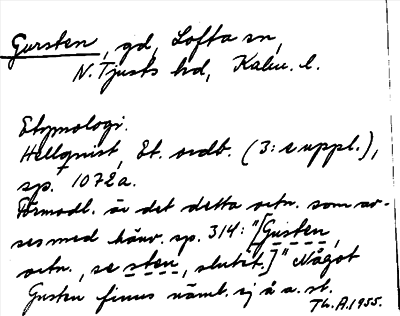 Gursten, gd, Lofta sn,
N. Tjusts hd, Kalm. l.
Etymologi.
Hellquist, Et. ordb. (3: e uppl.),
sp. 1072a.
Förmodl. är det detta ortn. som av-
ses med hänv. sp. 314: "[Gusten,
ortn., se sten, slutet.]" Något
Gusten finns näml. ej å a. st.
Th. A. 1955.